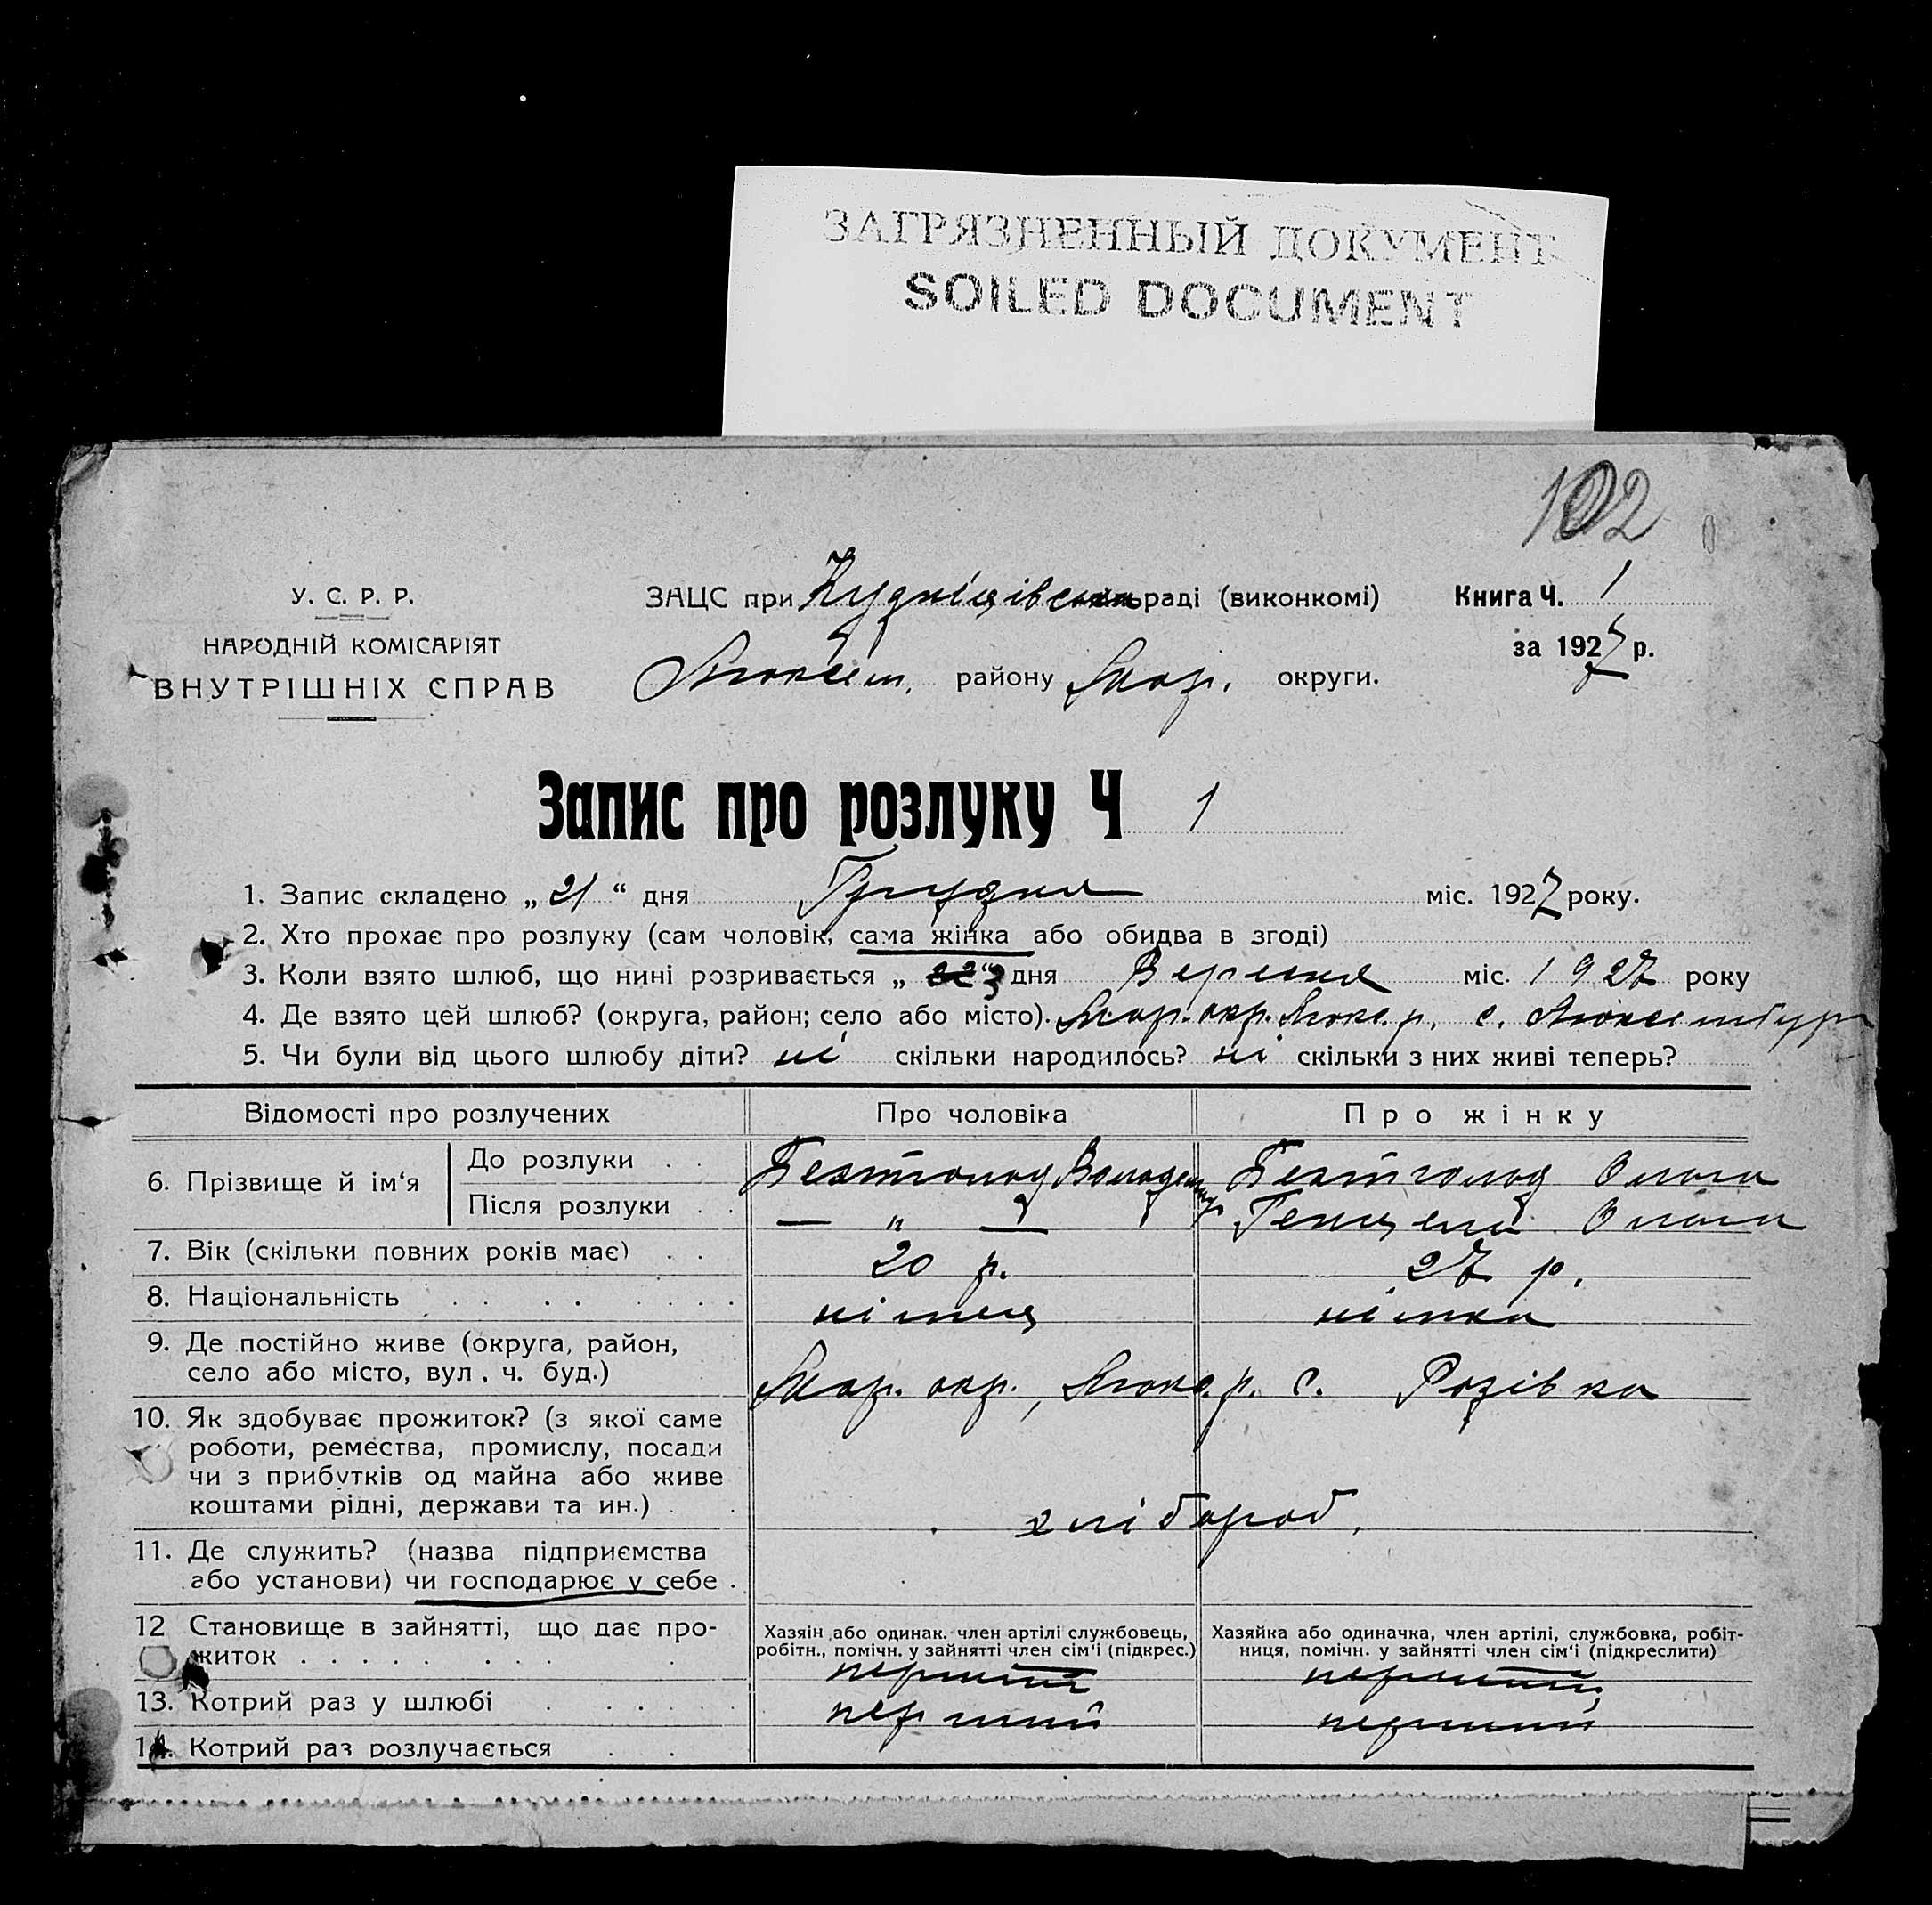 ЗАГРЯЗНЕННЫЙ ДОКУМЕНТ
SOILED DOCUMENT
102
У. С. Р. Р.
НАРОДНІЙ КОМІСАРІЯТ
ВНУТРІШНІХ СПРАВ
ЗАЦС при раді (виконкомі)
Люксем. району Мар. округи.
Книга Ч. 1
за 1927 р.
Запис про розлуку Ч 1
1. Запис складено „ 21 “ дня Грудня міс. 1927 року.
2. Хто прохає про розлуку (сам чоловік, сама жінка або обидва в згоді)
3. Коли взято шлюб, що нині розривається „ 3 “ дня Вересня міс. 1927 року
4. Де взято цей шлюб? (округа, район; село або місто). Мар. окр. Люкс. р. с. Люксембург
5. Чи були від цього шлюбу діти? ні скільки народилось? ні скільки з них живі теперь?
Відомості про розлучених Про чоловіка Про жінку
6. Прізвище й ім‘я
До розлуки . . Володимир Ольга
Після розлуки . . — „ — Ольга
7. Вік (скільки повних років має) . . 20 р. 27 р.
8. Національність . . . . . . . німець німка
9. Де постійно живе (округа, район,
село або місто, вул. ч. буд.) Мар. окр., Люкс. р. с. Розівка
10. Як здобуває прожиток? (з якої саме
роботи, ремества, промислу, посади
чи з прибутків од майна або живе
коштами рідні, держави та ин.) . . хлібороб.
11. Де служить? (назва підприємства
або установи) чи господарює у себе .
12 Становище в зайнятті, що дає про-
житок . . . . . . . . .
Хазяін або одинак. член артілі службовець,
робітн., помічн. у зайнятті член сім‘і (підкрес.)
Хазяйка або одиначка, член артілі, службовка, робіт-
ниця, помічн. у зайнятті член сім‘і (підкреслити)
13. Котрий раз у шлюбі . . . . . перший перший
14. Котрий раз розлучається . . перший перший